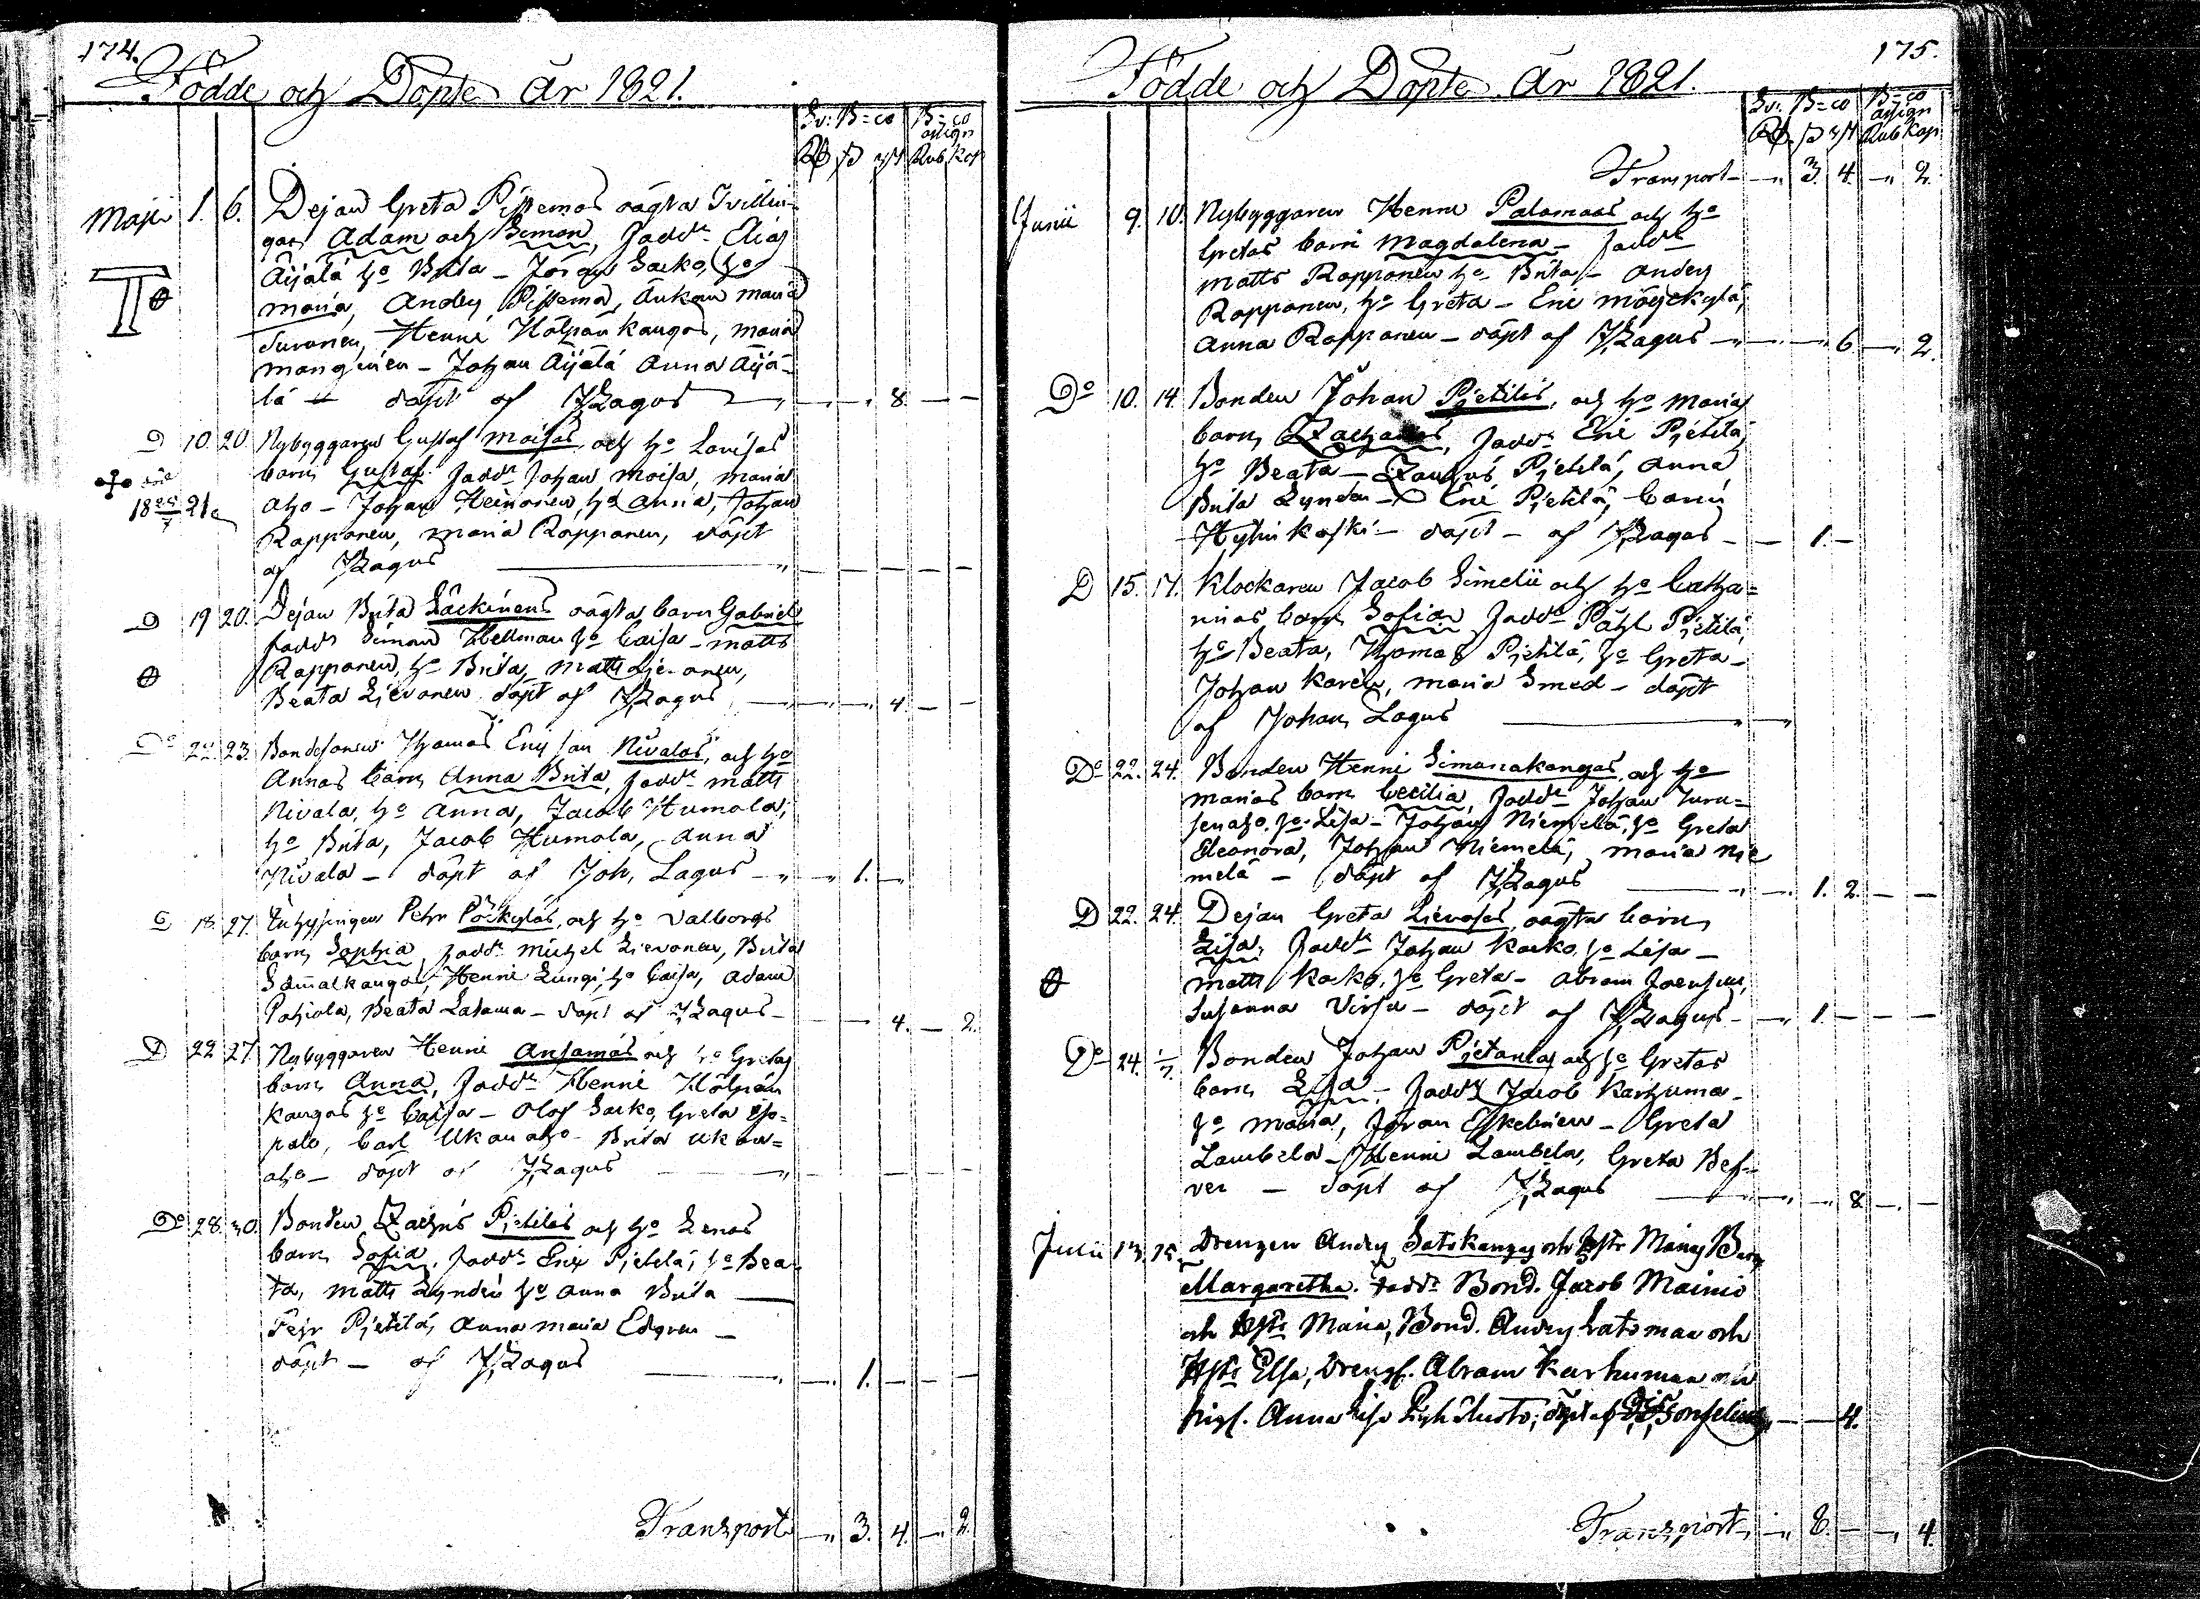 174.
Födde och Döpte År 1821.
Sv: B=co B=co assign
Rd ß rst Rub Kop
Maji 1. 6. Dejan Greta Pissemas oägta Tvillin-
gar Adam och Simon, fadd: Elias
Äijälä ho Brita - Jöran Sarko, ho
Maria, Anders Pissema, Änkan Maria
Turonen, Henric Hölpän kangas, Maria
Manginen - Johan Äijälä Anna Äijä-
lä - döpt af J Lagus - 8. -
D 10. 20. Nybyggaren Gustaf Moisas och ho Lovisas
barn Gustaf fadd: Johan Moisa, Maria
Aho - Johan Heinonen, ho Anna, Johan
Rapponen, Maria Rapponen, döpt
af J Lagus
D 19 20. Dejan Brita Säckinens oägta barn Gabriel
fadd: Simon Hellman ho Caisa - Matts
Rapponen, ho Brita, Matts Lievonen,
Beata Lievonen döpt af J Lagus 4. -
Do 22. 23. Bondesonen Thomas Ericsson Nivalas, och ho
Annas barn Anna Brita, fadd: Matts
Nivala, ho Anna, Jacob Humola,
ho Brita, Jacob Humola, Anna
Nivala - döpt af Joh. Lagus - 1. -
D 18. 27. Inhysingen Petr Pöckyläs, och ho Valborgs
barn Sophia, fadd: Michel Lievonen, Brita
Sämalkangas, Henric Lungi, ho Caisa, Adam
Pohiola, Beata Latama - döpt af J Lagus - 4. - 2.
D 22 27. Nybyggaren Henric Ansamäs och ho Gretas
barn Anna, fadd: Henric Hölpän
kangas ho Caisa - Olof Sarko, Greta Iso-
palo, Carl Ukonaho - Brita Ukon-
aho - döpt af J Lagus
Do 28. 30. Bonden Zachris Pietiläs och ho Lenas
barn Sofia, fadd: Eric Pietilä, ho Bea-
ta, Matts Lyndén ho Anna Brita
Petr Pietilä, Anna Maria Edgren -
döpt - af J Lagus 1. -
Transport - 3. 4. - 2.
175.
Födde och Döpte År 1821.
Sv: B=co B=co assign
Rd ß rst Rub Kop
Transport - 3. 4. - 2.
Junii 9. 10. Nybyggaren Henric Palomaas och ho
Gretas barn Magdalena - fadd:
Matts Rapponen ho Brita - Anders
Rapponen, ho Greta - Eric
Anna Rapponen - döpt af J Lagus - 6 - 2.
Do 10. 14. Bonden Johan Pietiläs, och ho Marias
barn Zacharias, fadd: Eric Pietilä,
ho Beata - Zachris Pietilä, Anna
Brita Lyndén - Eric Pietilä,
döpt - af J Lagus - 1. -
D 15. 17. Klockaren Jacob Simelii och ho Catha-
rinas barn Sofia fadd: Påhl Pietilä,
ho Beata, Thomas Pietilä, ho Greta -
Johan Karén, Maria Smed - döpt
af Johan Lagus
Do 22. 24. Bonden Henric Simanakangas, och ho
Marias barn Cecilia, fadd: Johan Turu-
senaho, ho Lisa - Johan Niemelä, ho Greta
Eleonora, Johan Niemelä, Maria Nie
melä - döpt af J Lagus - 1. 2. -
D 22. 24. Dejan Greta oägta barn
Lisa, fadd: Johan Karko, ho Lisa -
Matts Karko, ho Greta - Abram Joensuu,
Susanna Virsu - döpt af J Lagus - 1. -
Do 24. 1/7. Bonden Johan och ho Gretas
barn Lisa - fadd: Jacob Karhuma -
ho Maria, Jöran Eskelinen - Greta
Lambela - Henric Lambela, Greta Bef-
ver - döpt af J Lagus 8. -
Julii 13. 15. Drengen Anders Satokangas och Hstr Marias Barn
Margaretha. Fadd: Bond. Jacob Mainio
och Hstr Maria, Bond. Anders Latomaa och
Hstr Elsa, Drengs. Abram Karhumaa och
Pigs. Anna Lisa - 4.
Transport - 8. - 4.